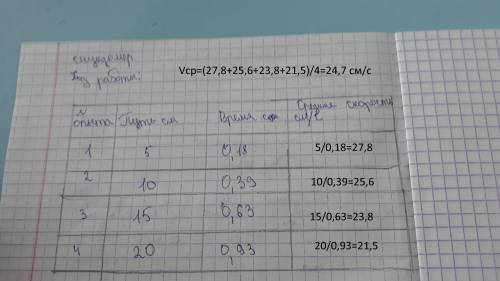 секундомер
Ход работы:
Vср=(27,8+25,6+23,8+21,5)/4=24,7 см/с
№ опыта Путь см Время сек Средняя скорость см/с
1 5 0,18 5/0,18=27,8
2 10 0,39 10/0,39=25,6
3 15 0,63 15/0,63=23,8
4 20 0,93 20/0,93=21,5